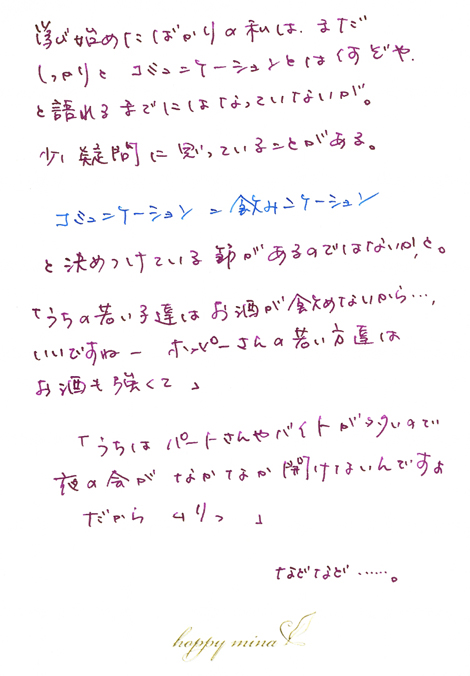 学び始めたばかりの私は、まだ
しっかりと コミュニケーションとはくすぞや、
と語れるまでにはなっていないが。
少し疑問に思っていることがある。
コミュニケーション = 飲みニケーション
と決めつけている節があるのではないか、と。
「うちの若い子達はお酒が飲めないから…,
いいですねー ホッピーさんの若い方達は
お酒も強くて」
「うちは パートさんやバイトが多いので
夜の会が なかなか開けないんですよ
だから 」
などなど……。
hoppy mina